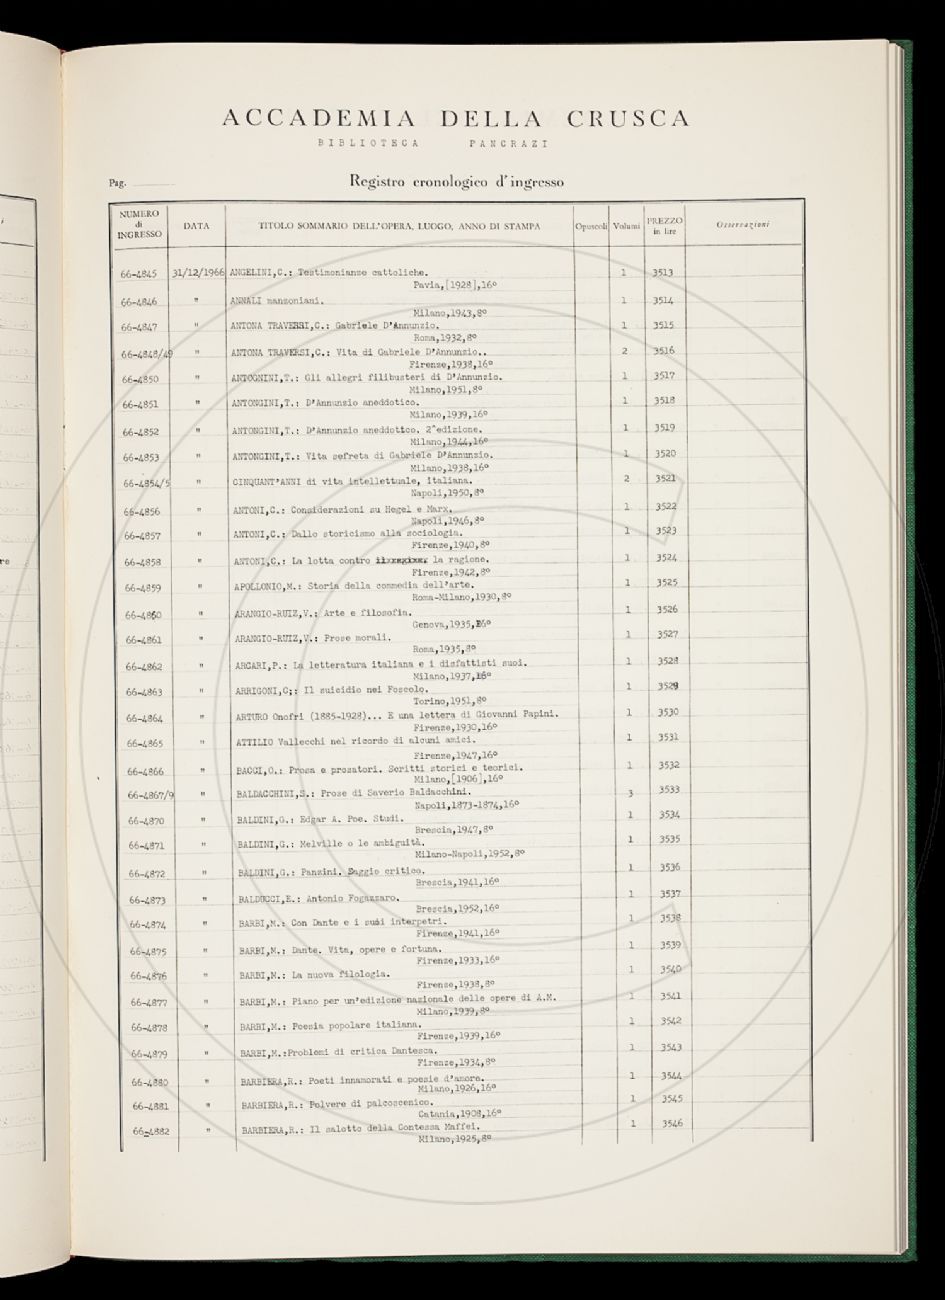 ACCADEMIA DELLA CRUSCA
BIBLIOTECA PANCRAZI
Pag.
Registro cronologico d'ingresso
NUMERO di INGRESSO DATA TITOLO SOMMARIO DELL'OPERA, LUOGO, ANNO DI STAMPA Opuscoli Volumi PREZZO in lire Osservazioni
66-4845 31/12/1966 ANGELINI,C.: Testimonianze cattoliche. 1 3513
Pavia,[1928],16º
66-4846 " ANNALI manzoniani. 1 3514
Milano,1943,8º
66-4847 " ANTONA TRAVERSI,C.: Gabriele D'Annunzio. 1 3515
Roma,1932,8º
66-4848/49 " ANTONA TRAVERSI,C.: Vita di Gabriele D'Annunzio.. 2 3516
Firenze,1938,16º
66-4850 " ANTOGNINI,T.: Gli allegri filibusteri di D'Annunzio. 1 3517
Milano,1951,8º
66-4851 " ANTONGINI,T.: D'Annunzio aneddotico. 1 3518
Milano,1939,16º
66-4852 " ANTONGINI,T.: D'Annunzio aneddottco. 2^edizione. 1 3519
Milano,1944,16º
66-4853 " ANTONGINI,T.: Vita sefreta di Gabriele D'Annunzio. 1 3520
Milano,1938,16º
66-4854/5 " CINQUANT'ANNI di vita intellettuale, italiana. 2 3521
Napoli,1950,8º
66-4856 " ANTONI,C.: Considerazioni su Hegel e Marx. 1 3522
Napoli,1946,8º
66-4857 " ANTONI,C.: Dallo storicismo alla sociologia. 1 3523
Firenze,1940,8º
66-4858 " ANTONI,C.: La lotta contro la ragione. 1 3524
Firenze,1942,8º
66-4859 " APOLLONIO,M.: Storia della commedia dell'arte. 1 3525
Roma-Milano,1930,8º
66-4860 " ARANGIO-RUIZ,V.: Arte e filosofia. 1 3526
Genova,1935,16º
66-4861 " ARANGIO-RUIZ,V.: Prose morali. 1 3527
Roma,1935,8º
66-4862 " ARCARI,P.: La letteratura italiana e i disfattisti suoi. 1 3528
Milano,1937,16º
66-4863 " ARRIGONI,G;: Il suicidio nei Foscolo. 1 3529
Torino,1951,8º
66-4864 " ARTURO Onofri (1885-1928)... E una lettera di Giovanni Papini. 1 3530
Firenze,1930,16º
66-4865 " ATTILIO Vallecchi nel ricordo di alcuni amici. 1 3531
Firenze,1947,16º
66-4866 " BACCI,O.: Prosa e prosatori. Scritti storici e teorici. 1 3532
Milano,[1906],16º
66-4867/9 " BALDACCHINI,S.: Prose di Saverio Baldacchini. 3 3533
Napoli,1873-1874,16º
66-4870 " BALDINI,G.: Edgar A. Poe. Studi. 1 3534
Brescia,1947,8º
66-4871 " BALDINI,G.: Melville o le ambiguità. 1 3535
Milano-Napoli,1952,8º
66-4872 " BALDINI,G.: Panzini. Saggio critico. 1 3536
Brescia,1941,16º
66-4873 " BALDUCCI,E.: Antonio Fogazzaro. 1 3537
Brescia,1952,16º
66-4874 " BARBI,M.: Con Dante e i suoi interpetri. 1 3538
Firenze,1941,16º
66-4875 " BARBI,M.: Dante. Vita, opere e fortuna. 1 3539
Firenze,1933,16º
66-4876 " BARBI,M.: La nuova filologia. 1 3540
Firenze,1938,8º
66-4877 " BARBI,M.: Piano per un'edizione nazionale delle opere di A.M. 1 3541
Milano,1939,8º
66-4878 " BARBI,M.: Poesia popolare italiana. 1 3542
Firenze,1939,16º
66-4879 " BARBI,M.:Problemi di critica Dantesca. 1 3543
Firenze,1934,8º
66-4880 " BARBIERA,R.: Poeti innamorati e poesie d'amore. 1 3544
Milano,1926,16º
66-4881 " BARBIERA,R.: Polvere di palcoscenico. 1 3545
Catania,1908,16º
66-4882 " BARBIERA,R.: Il salotto della Contessa Maffei. 1 3546
Milano,1925,8º